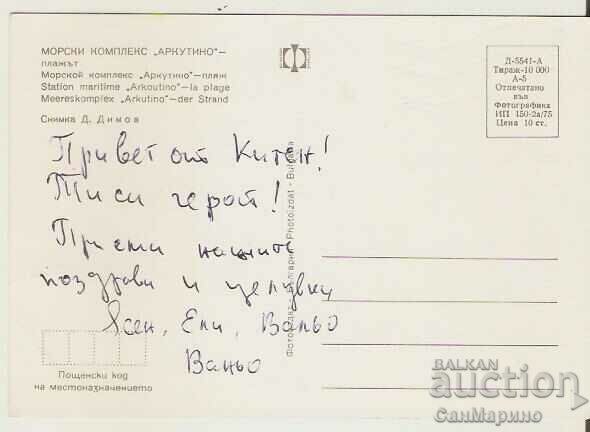 МОРСКИ КОМПЛЕКС „АРКУТИНО"—
плажът
Морской комплекс „Аркутино"—пляж
Station maritime „Arkoutino"—la plage
Meereskomplex „Arkutino"—der Strand
Снимка Д. Димов
Д-5541-А
Тираж-10 000
А-5
Отпечатано
във
Фотографика
ИП 150-2а/75
Цена 10 ст.
Привет от Китен!
Ти си герой!
Приеми нашите
поздрави и целувки
Ясен, Ели, Вальо
Ваньо
Фотоиздат - България Photoizdat - Bulgaria
Пощенски код
на местоназначението
BALKAN
auction
СанМарино